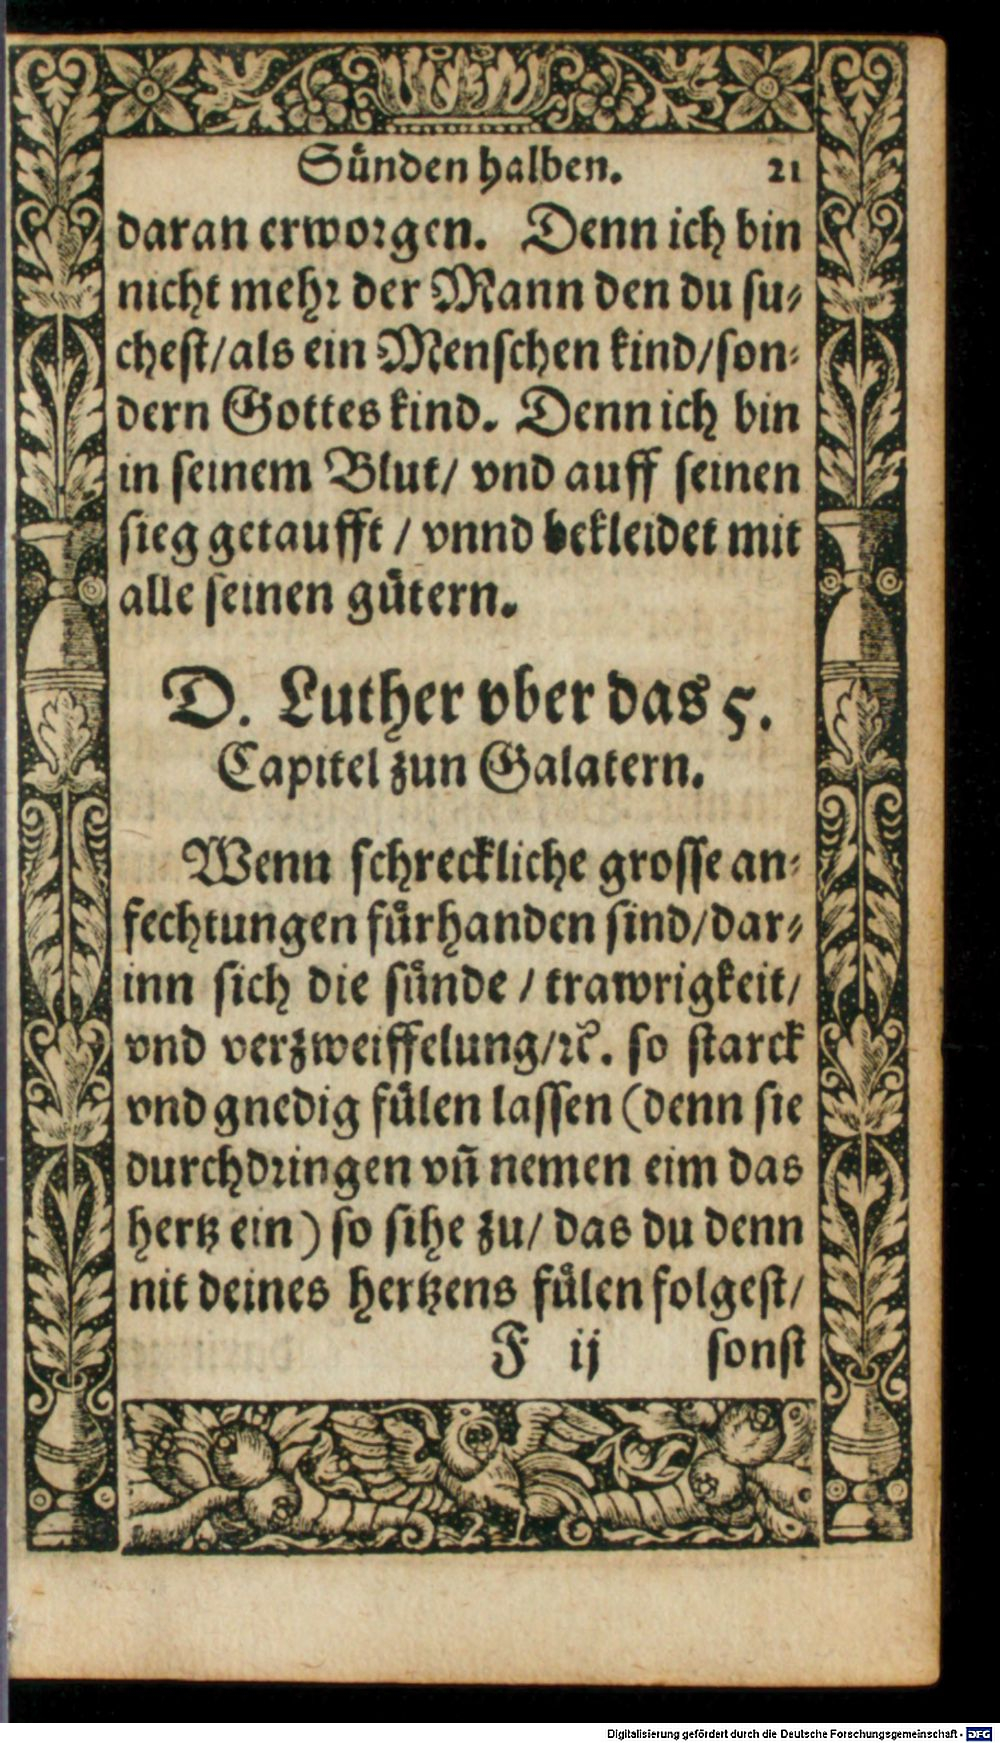 Suͤnden halben. 21
daran erworgen. Denn ich bin
nicht mehr der Mann den du su⸗
chest/als ein Menschen kind/son⸗
dern Gottes kind. Denn ich bin
in seinem Blut/ vnd auff seinen
sieg getaufft / vnnd bekleidet mit
alle seinen guͤtern.
D. Luther vber das 5.
Capitel zun Galatern.
Wenn schreckliche grosse an⸗
fechtungen fuͤrhanden sind/dar⸗
inn sich die suͤnde / trawrigkeit/
vnd verzweiffelung/ꝛc̃. so starck
vnd gnedig fuͤlen lassen (denn sie
durchdringen vñ nemen eim das
hertz ein) so sihe zu/ das du denn
nit deines hertzens fuͤlen folgest/
F ij sonst
Digitalisierung gefördert durch die Deutsche Forschungsgemeinschaft - DFG